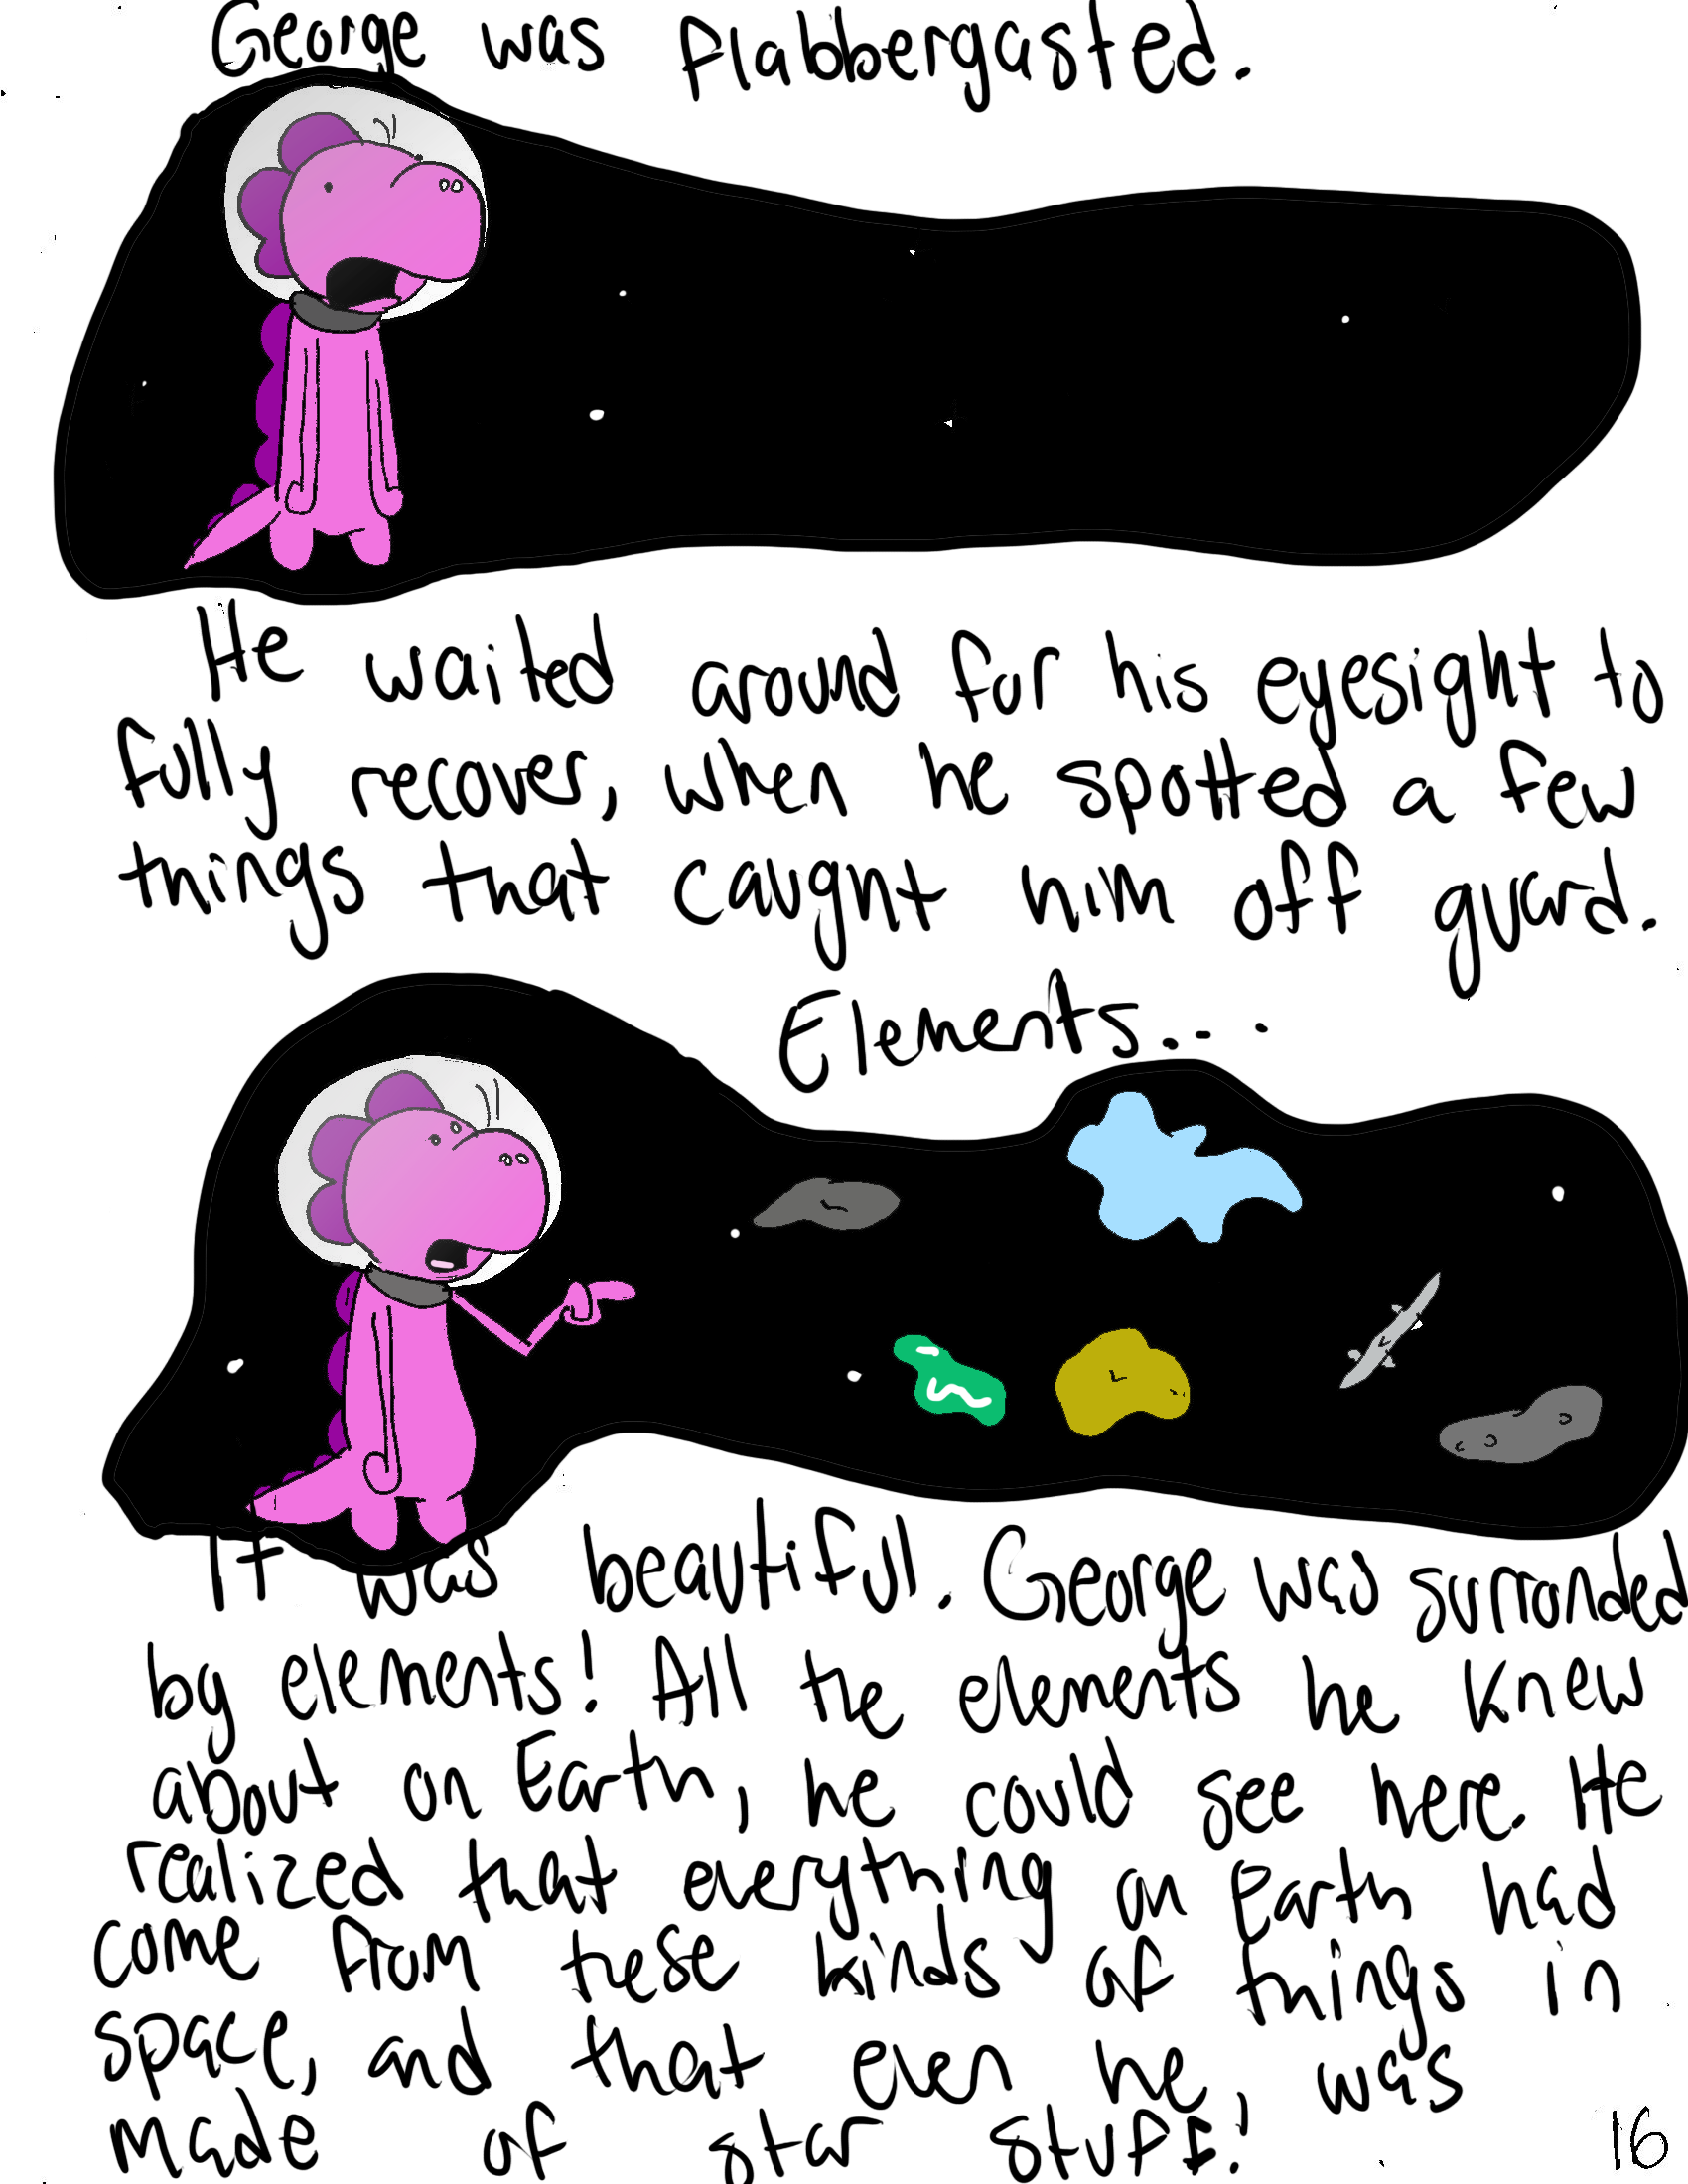 George was flabbergasted.
He waited around for his eyesight to
fully recover, when he spotted a few
things that caught him off guard.
Elements...
It was beautiful. George was surronded
by elements! All the elements he knew
about on Earth, he could see here. He
realized that everything on Earth had
come from these kinds of things in
space, and that even he, was
made of star stuff!
16